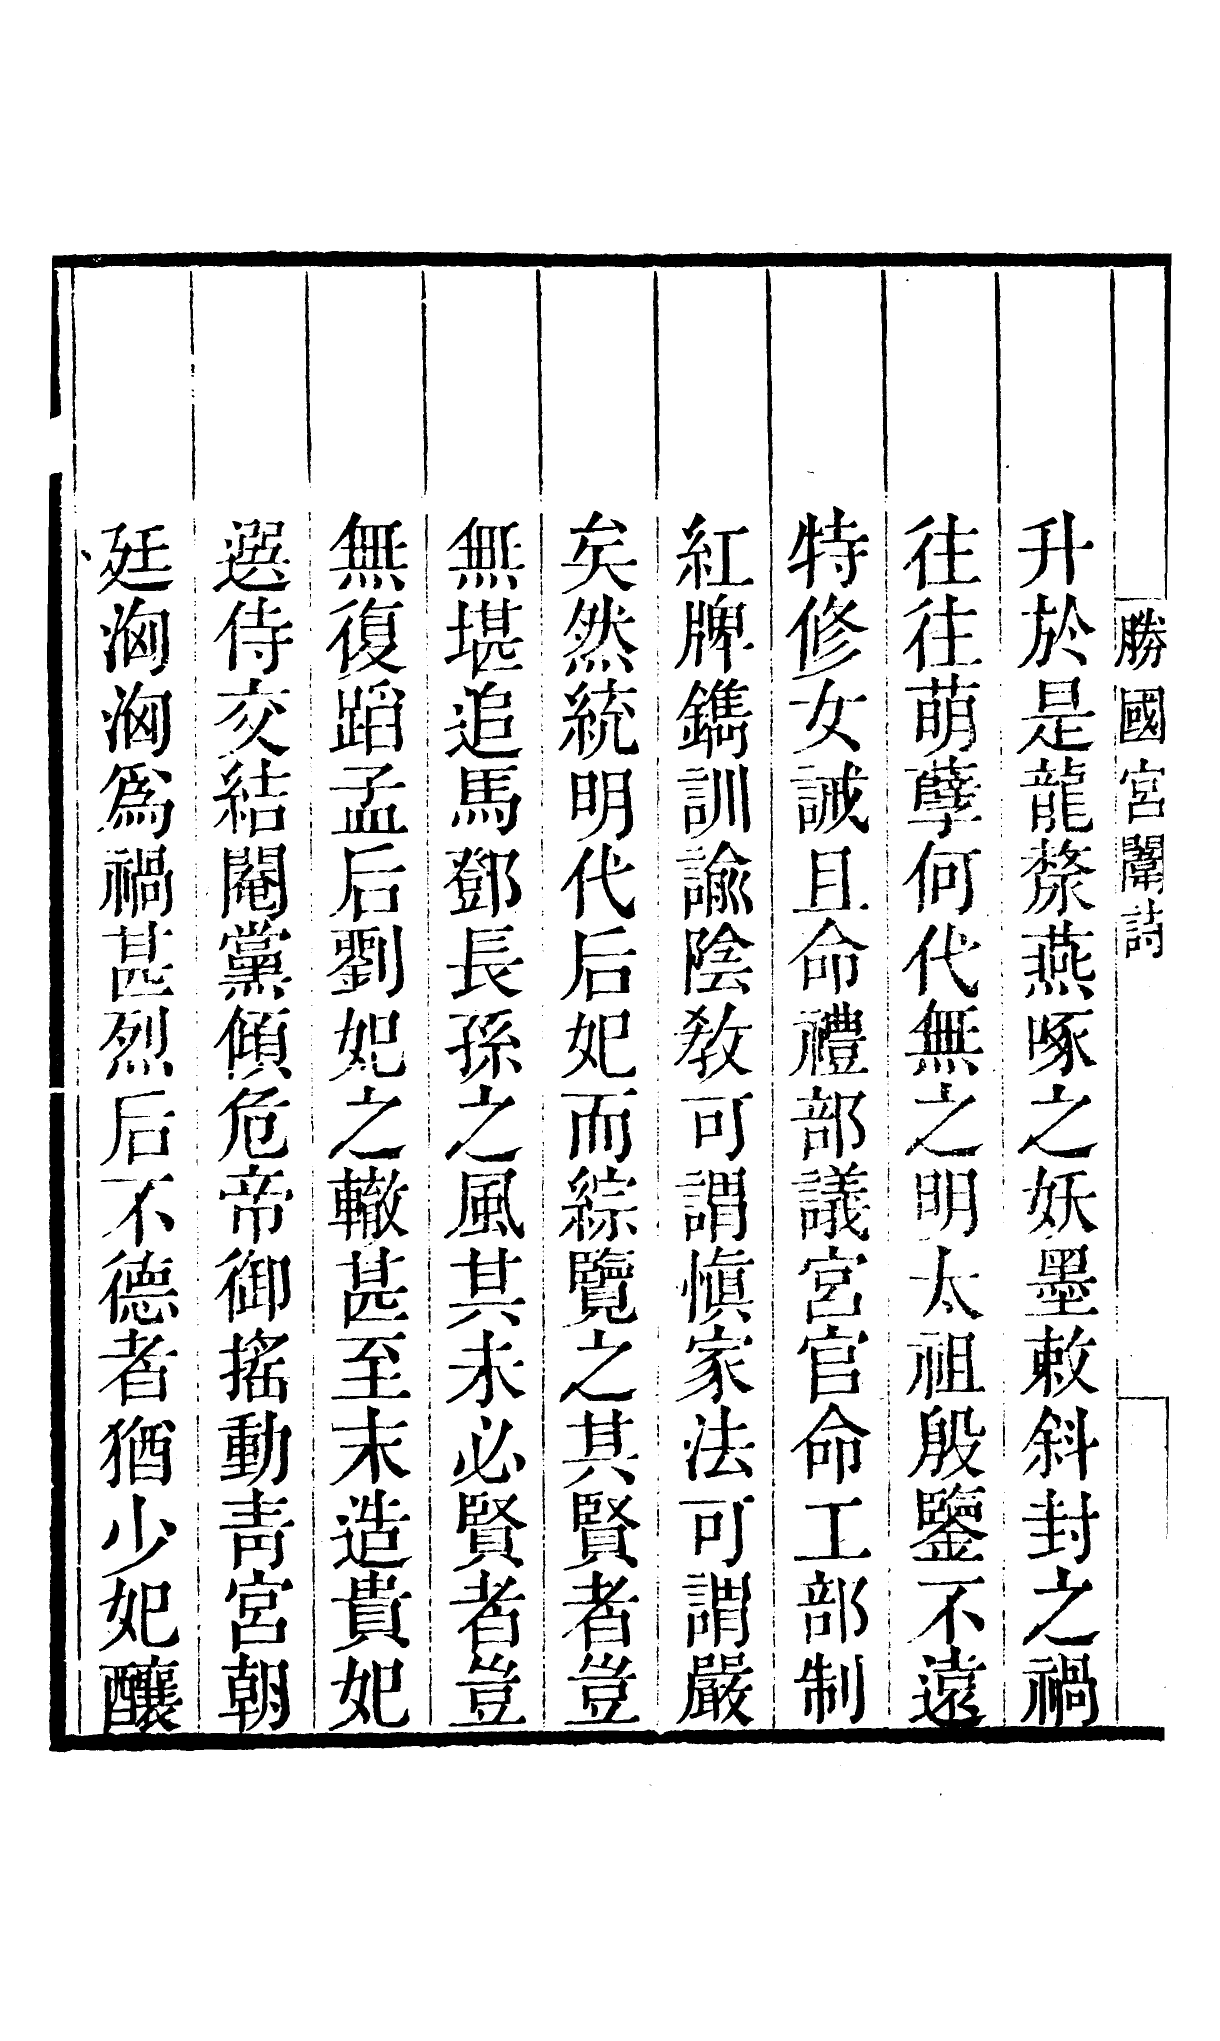 勝國宮闈詩
升於是龍漦燕啄之妖墨敕斜封之禍
往往萌孽何代無之明太祖殷鑒不遠
特修女誡且命禮部議宮官命工部制
紅牌鐫訓諭陰教可謂愼家法可謂嚴
矣然統明代后妃而綜覽之其賢者豈
無堪追馬鄧長孫之風其未必賢者豈
無復蹈孟后劉妃之轍甚至末造貴妃
選侍交結閹黨傾危帝御搖動靑宮朝
廷洶洶爲禍甚烈后不德者猶少妃釀